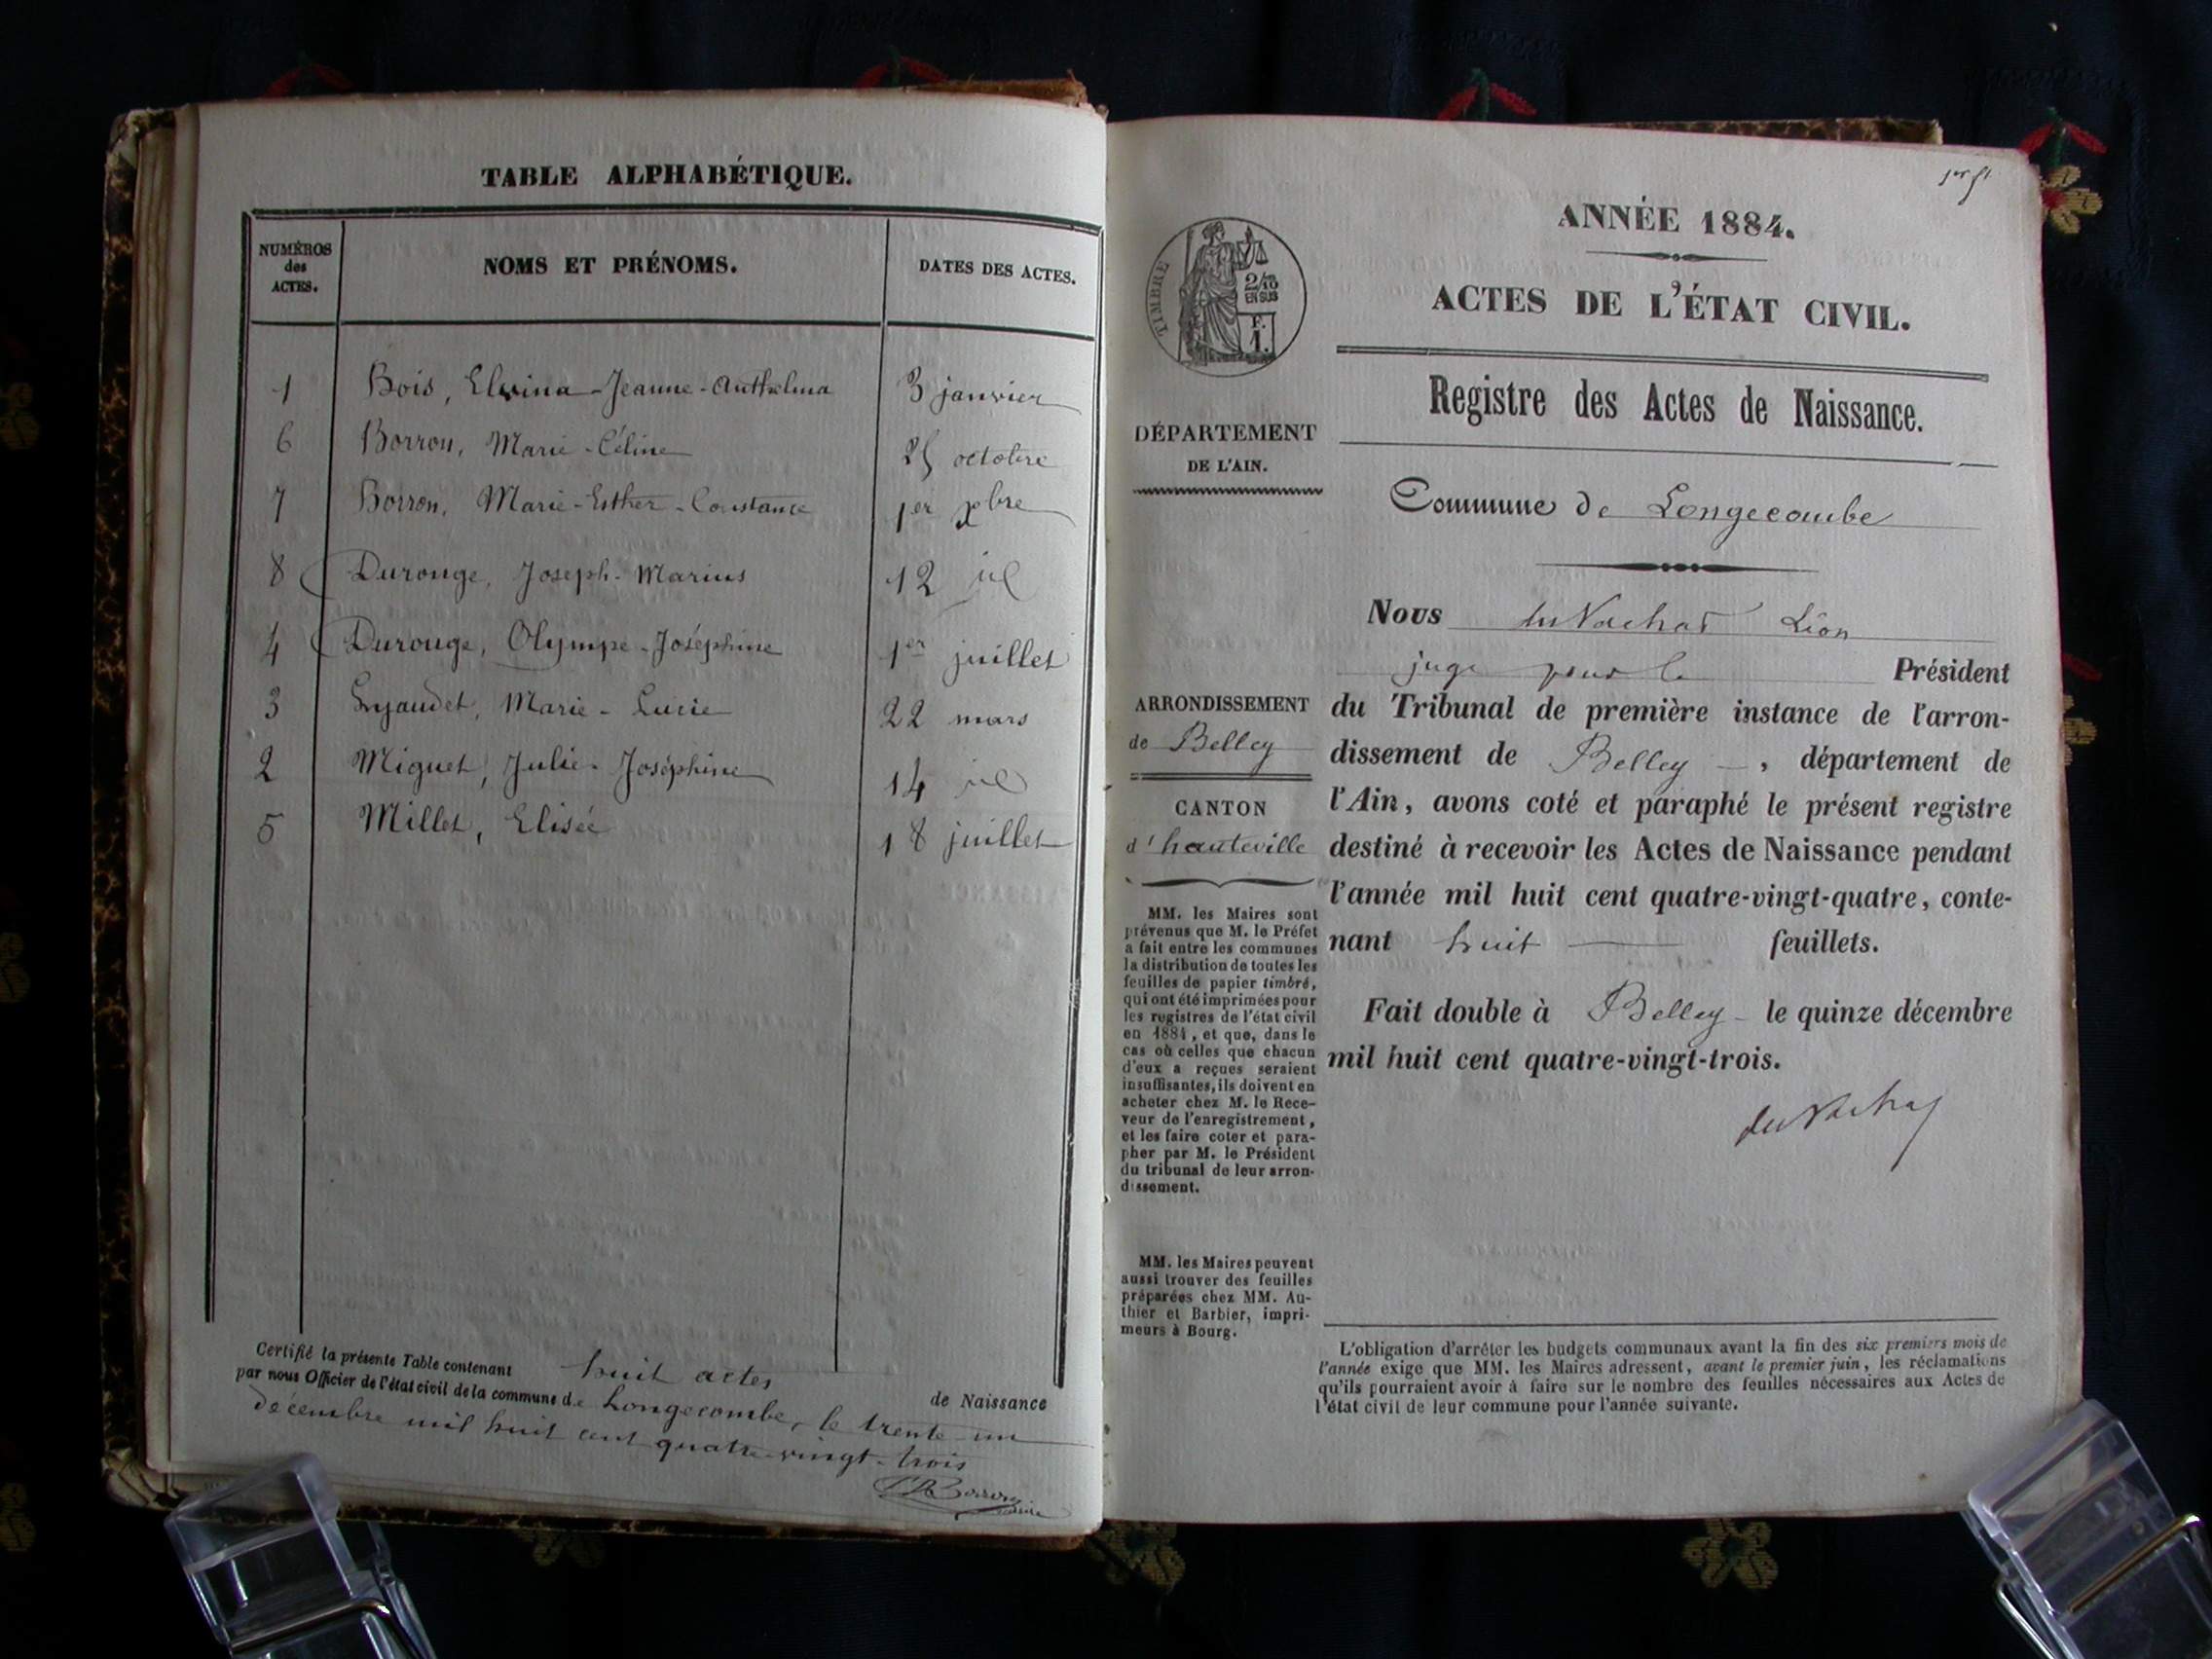 TABLE ALPHABÉTIQUE.
NUMÉROS
des
ACTES.
NOMS ET PRÉNOMS.
DATES DES ACTES.
1 Bois, Elwina-Jeanne-Anthelma 3 janvier
6 Borron, Marie-Céline 25 octobre
7 Borron, Marie-Esther-Constance 1er Xbre
8 Durouge, Joseph-Marius 12 id
4 Durouge, Olympe-Joséphine 1er juillet
3 Lyaudet, Marie-Lucie 22 mars
2 Miguet, Julie-Joséphine 14 id
5 Millet, Elisée 18 juillet
Certifié la présente Table contenant huit actes de Naissance
par nous Officier de l'état civil de la commune de Longecombe, le trente-un
décembre mil huit cent quatre-vingt-trois
Borron
1er
ANNÉE 1884.
ACTES DE L'ÉTAT CIVIL.
Registre des Actes de Naissance.
TIMBRE
2/10
EN SUS
F.
1.
DÉPARTEMENT
DE L'AIN.
Commune de Longecombe
ARRONDISSEMENT
de Belley
CANTON
d'hauteville
MM. les Maires sont
prévenus que M. le Préfet
a fait entre les communes
la distribution de toutes les
feuilles de papier timbré,
qui ont été imprimées pour
les registres de l'état civil
en 1884, et que, dans le
cas où celles que chacun
d'eux a reçues seraient
insuffisantes, ils doivent en
acheter chez M. le Rece-
veur de l'enregistrement,
et les faire coter et para-
pher par M. le Président
du tribunal de leur arron-
dissement.
MM. les Maires peuvent
aussi trouver des feuilles
préparées chez MM. Au-
thier et Barbier, impri-
meurs à Bourg.
Nous du Vachat Léon
juge pour le Président
du Tribunal de première instance de l'arron-
dissement de Belley, département de
l'Ain, avons coté et paraphé le présent registre
destiné à recevoir les Actes de Naissance pendant
l'année mil huit cent quatre-vingt-quatre, conte-
nant huit feuillets.
Fait double à Belley le quinze décembre
mil huit cent quatre-vingt-trois.
du Vachat
L'obligation d'arrêter les budgets communaux avant la fin des six premiers mois de
l'année exige que MM. les Maires adressent, avant le premier juin, les réclamations
qu'ils pourraient avoir à faire sur le nombre des feuilles nécessaires aux Actes de
l'état civil de leur commune pour l'année suivante.